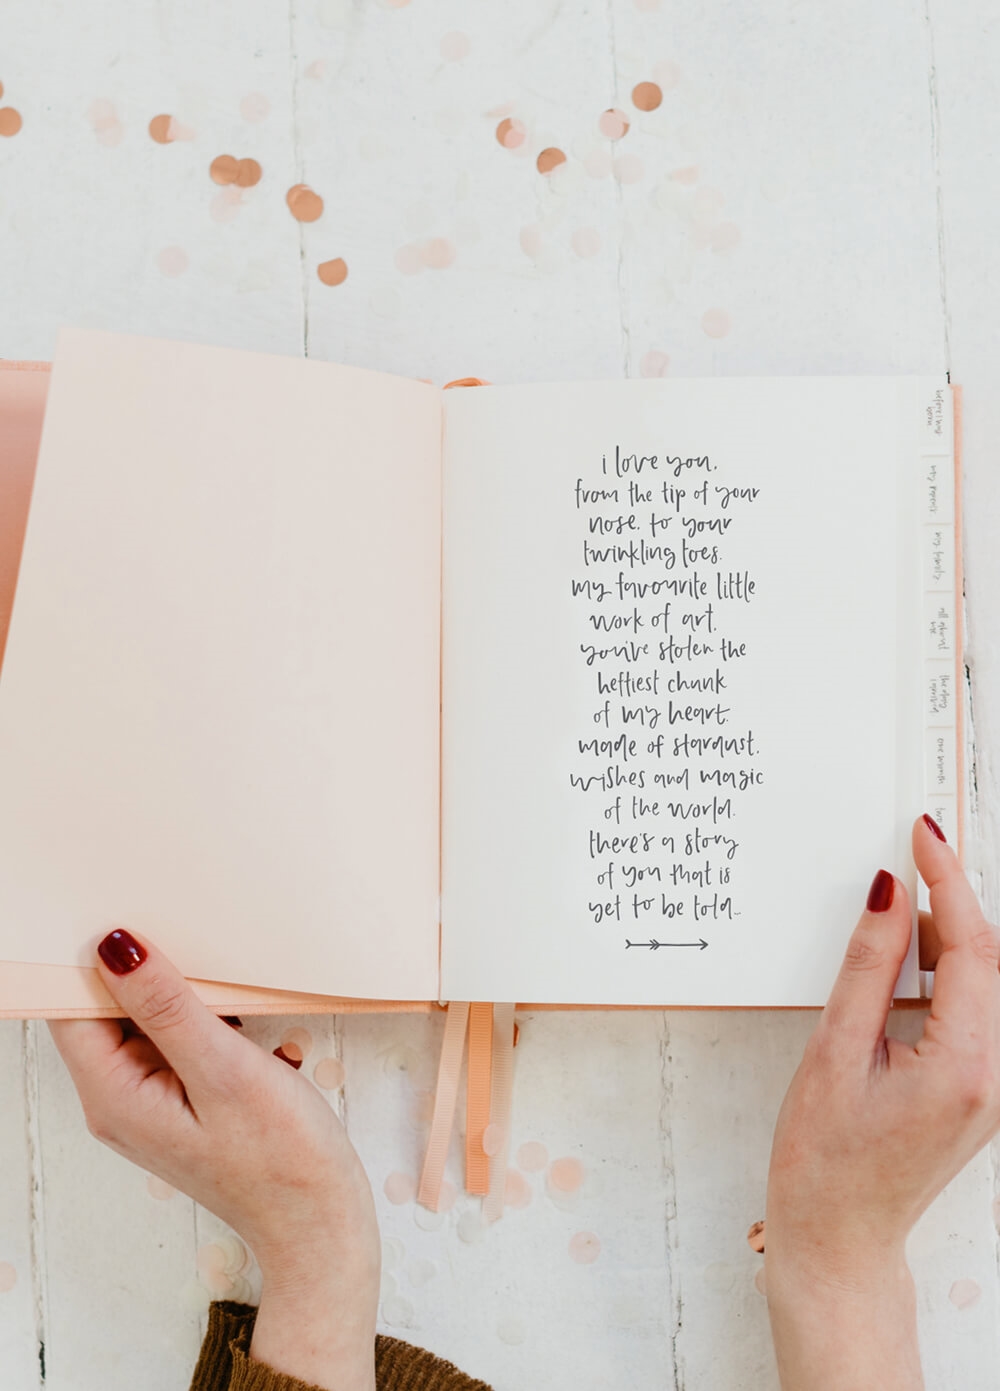 i love you,
from the tip of your
nose, to your
twinkling toes.
my favourite little
work of art,
you've stolen the
heftiest chunk
of my heart.
made of stardust,
wishes and magic
of the world.
there's a story
of you that is
yet to be told...
before i was
born
my parents
my family
all
about
one
two